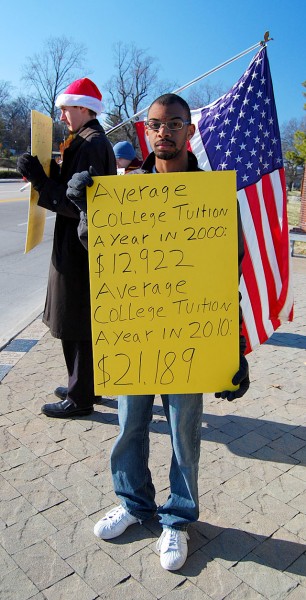 AVERAGE
COLLEGE TUITION
A YEAR IN 2000:
$12,922
AVERAGE
COLLEGE TUITION
A YEAR IN 2010:
$21,189